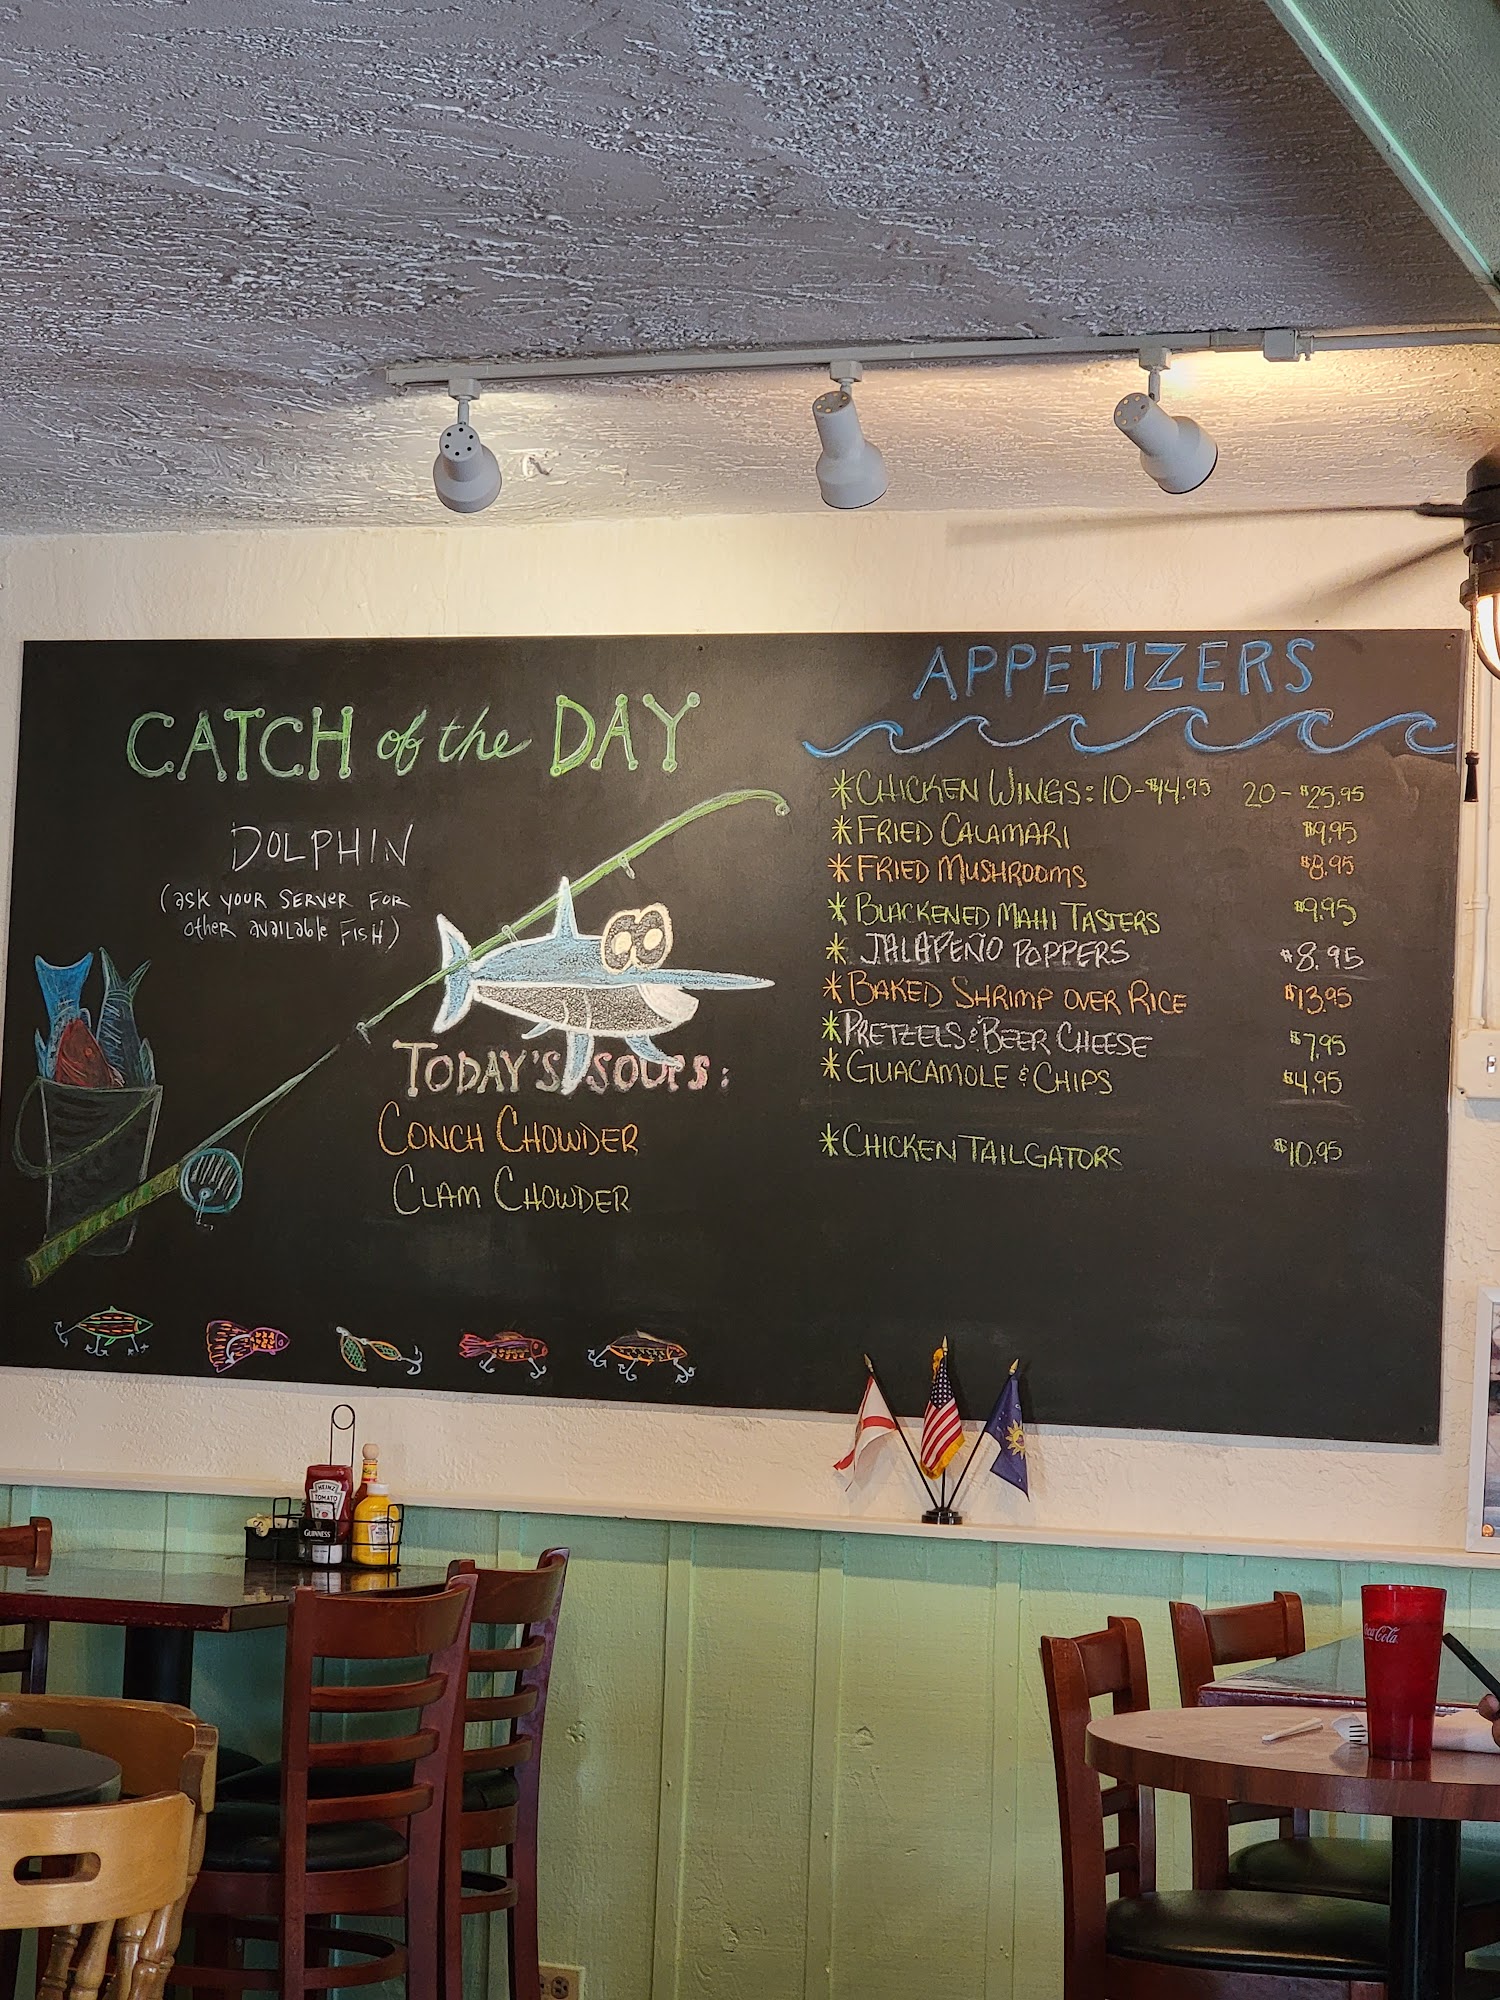 CATCH of the DAY
DOLPHIN
(ask your server for
other available Fish)
TODAY'S SOUPS:
CONCH CHOWDER
CLAM CHOWDER
APPETIZERS
*CHICKEN WINGS: 10-$14.95 20-$25.95
*FRIED CALAMARI $9.95
*FRIED MUSHROOMS $8.95
*BLACKENED MAHI TASTERS $9.95
*JALAPEÑO POPPERS $8.95
*BAKED SHRIMP OVER RICE $13.95
*PRETZELS & BEER CHEESE $7.95
*GUACAMOLE & CHIPS $4.95
*CHICKEN TAILGATORS $10.95
HEINZ
TOMATO
GUINNESS
Coca-Cola